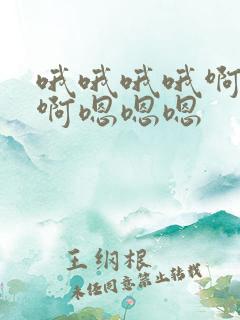 哦哦哦哦啊
啊嗯嗯嗯
王纲根
未经同意禁止转载